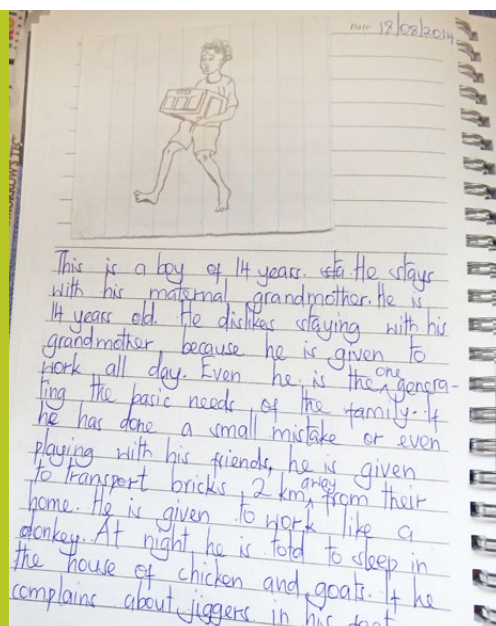 Date 18/08/2014
This is a boy of 14 years. sta He stays
with his maternal grandmother. He is
14 years old. He dislikes staying with his
grandmother because he is given to
work all day. Even he is the one genera-
ting the basic needs of the family. If
he has done a small mistake or even
playing with his friends, he is given
to transport bricks, 2 km away from their
home. He is given to work like a
donkey. At night, he is told to sleep in
the house of chicken and goats. If he
complains about jiggers in his